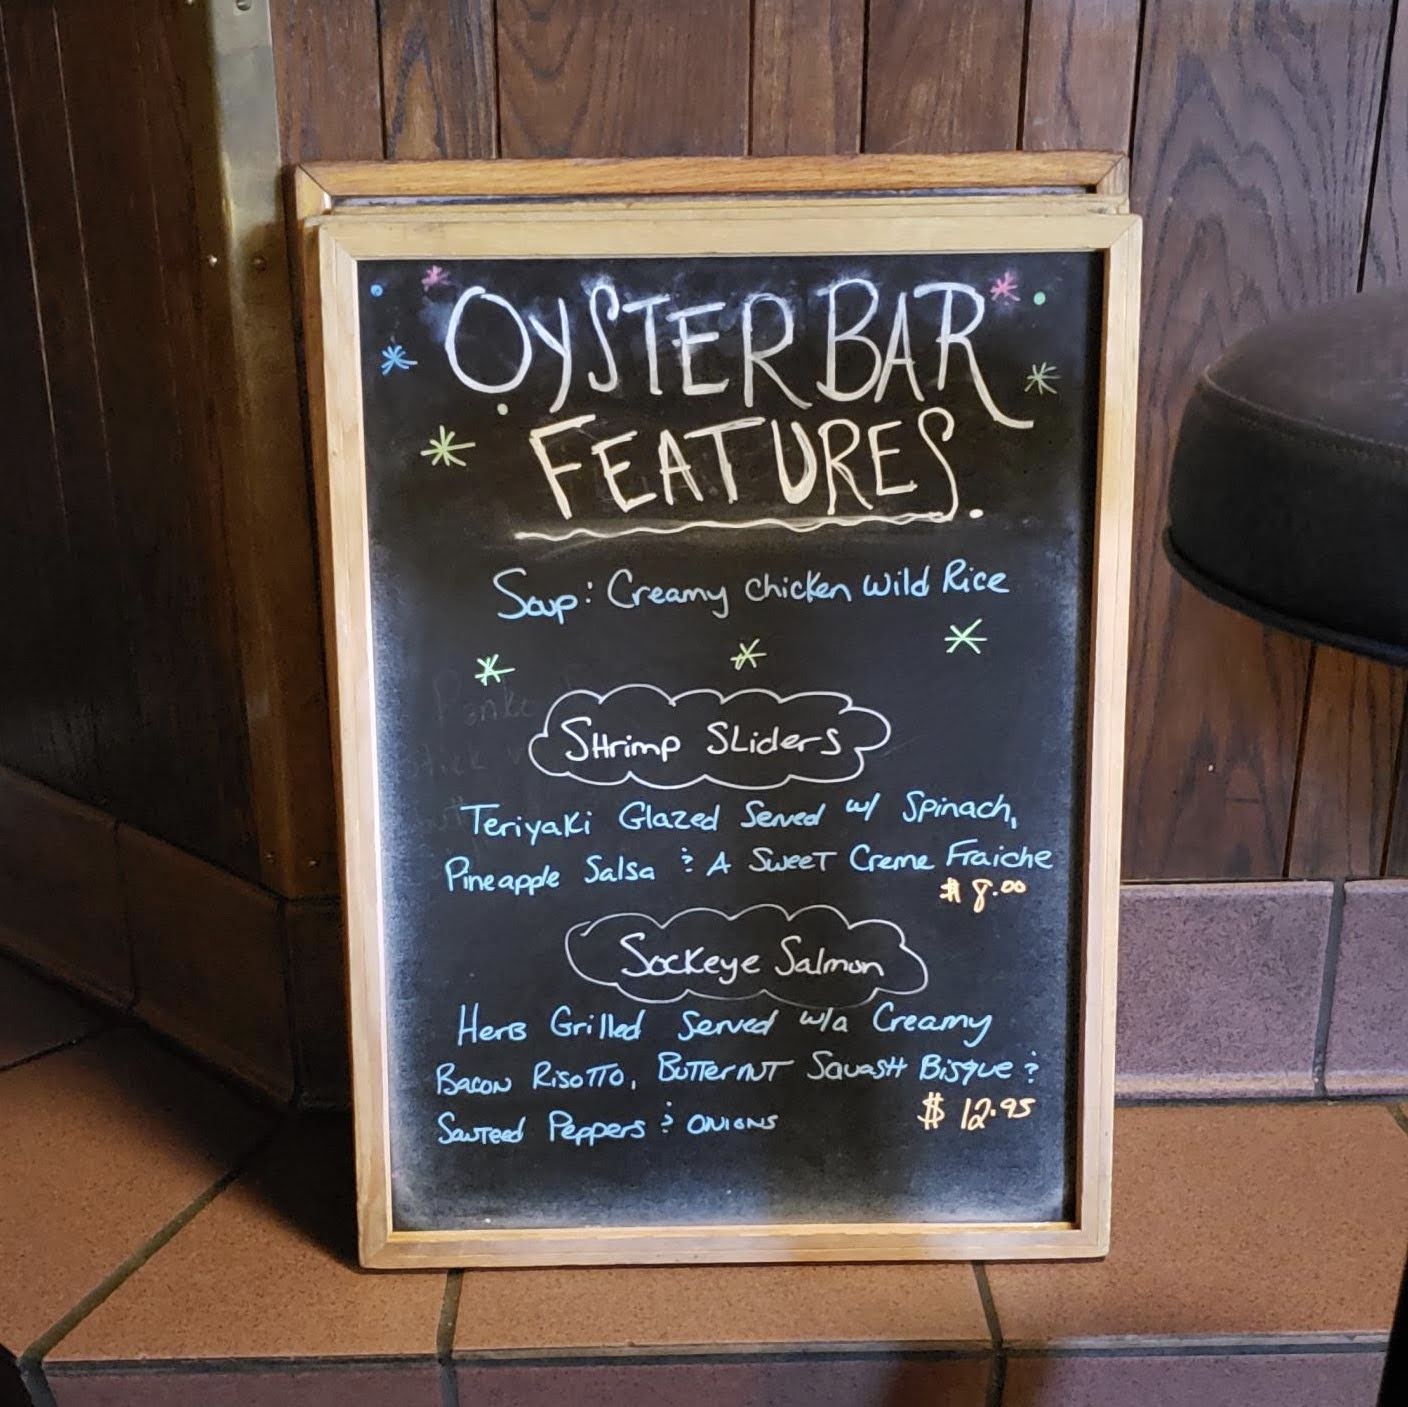 OYSTER BAR
FEATURES.
Soup: Creamy Chicken Wild Rice
SHrimp SLiderS
Teriyaki Glazed Served w/ Spinach,
Pineapple Salsa & A Sweet Creme Fraiche
$ 8.00
Sockeye Salmon
Herb Grilled Served w/a Creamy
Bacon Risotto, Butternut Squash Bisque &
Sauteed Peppers & Onions
$ 12.95